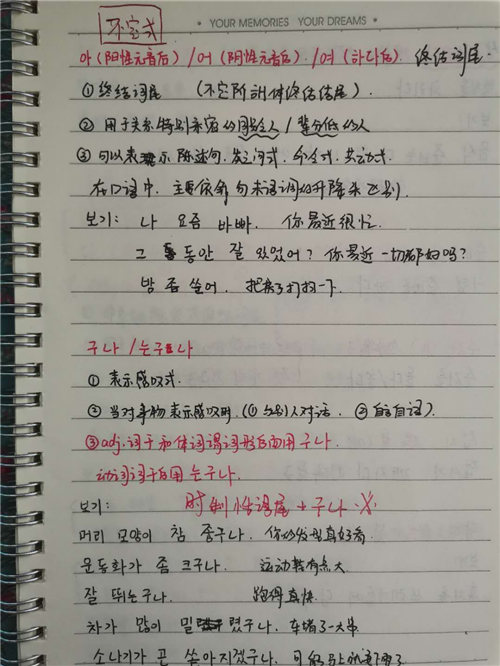 • YOUR MEMORIES YOUR DREAMS •
不定式
아(阳性元音后)/어(阴性元音后)/여(하다后) 终结词尾
①终结词尾 (不定阶 终结词尾).
②用于关系特别亲密的同龄人/辈分低的人
③可以表示 陈述句. 疑问式. 命令式. 共动式.
在口语中. 主要依靠句末语调的升降来区别.
보기: 나 요즘 바빠. 你最近很忙.
그 동안 잘 있었어? 你最近一切都好吗?
방 좀 쓸어. 把房子打扫一下.
구나/는구나
①表示感叹式.
②当对事物表示感叹时. (①与别人对话. ②自言自语).
③adj.词干和体词谓词形后面用 구나.
动词词干后用 는구나.
보기: 时制性词尾 + 구나 ×
머리 모양이 참 좋구나. 你的发型真好看.
운동화가 좀 크구나. 运动鞋有点大.
잘 뛰는구나. 跑得真快.
차가 많이 밀렸구나. 车堵了一大串.
소나기가 곧 쏟아지겠구나.